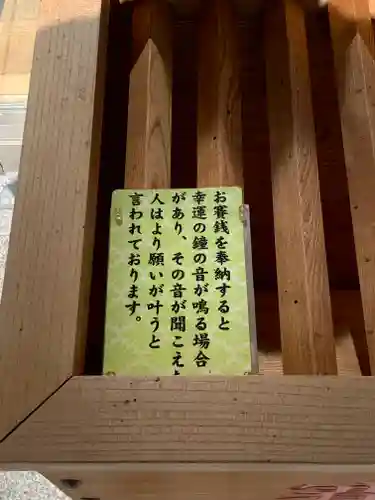 お賽銭を奉納すると
幸運の鐘の音が鳴る場合
があり、その音が聞こえ
人はより願いが叶うと
言われております。